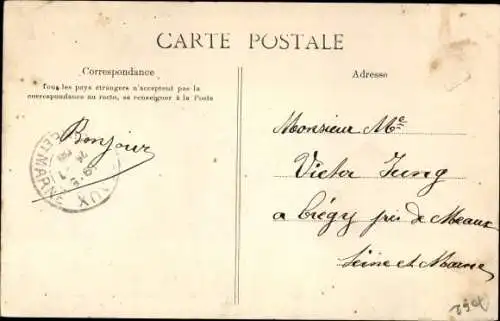 CARTE POSTALE
Correspondance
Tous les pays étrangers n'acceptent pas la
correspondance au recto, se renseigner à la Poste
Bonjour
ET MARNE
AUX
Adresse
Monsieur Me
Victor Jung
a Crégy près de Meaux
Seine et Marne